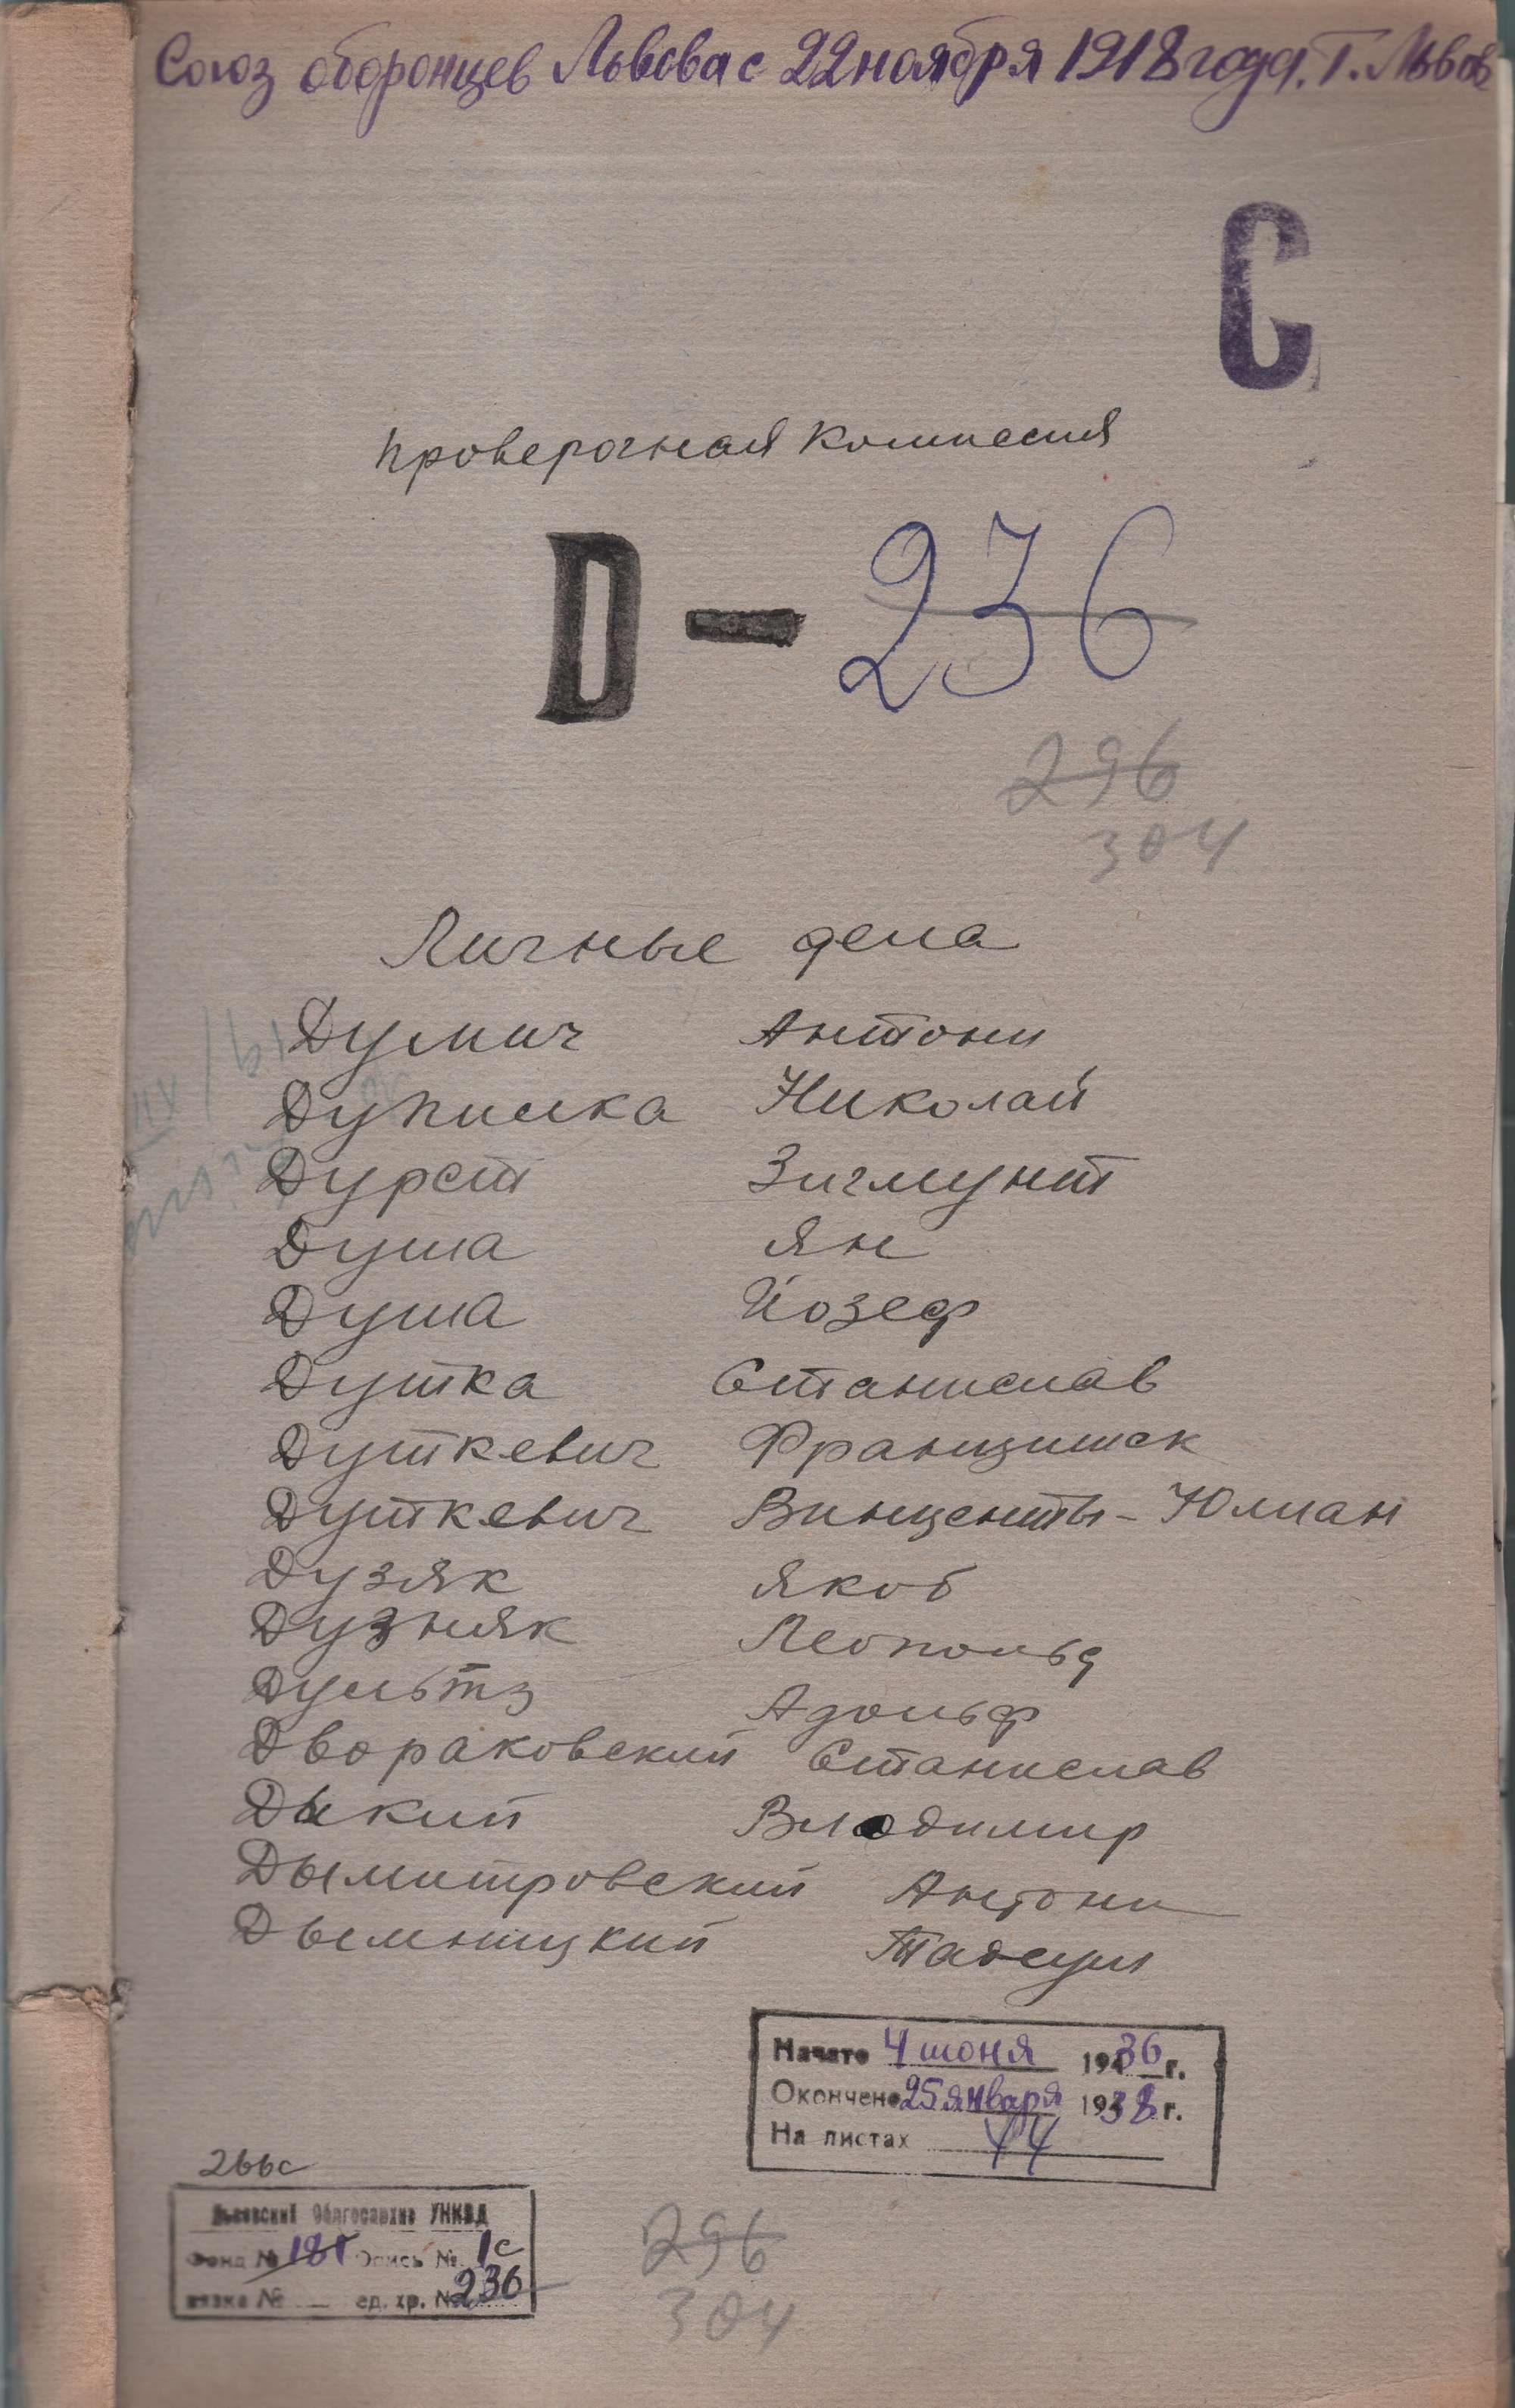 Союз оборонцев Львова с 22 ноября 1918 года. Г. Львов
С
Проверочная комиссия
D - 236
296
304
Личные дела
Думич Антони
Дупишка Николай
Дурст Зигмунт
Душа Ян
Душа Йозеф
Дутка Станислав
Дуткевич Францишек
Дуткевич Винценты - Юлиан
Дузяк Якоб
Дузняк Леопольд
Дультз Адольф
Двораковский Станислав
Дыкий Владимир
Дымитровский Антони
Дымницкий Тадеуш
Начато 4 июня 1936 г.
Окончено 25 января 1938 г.
На листах 44
266с
Львовский Облгосархив УНКВД
Фонд № 181 Опись № 1с
вязка № ед. хр. № 236
296
304